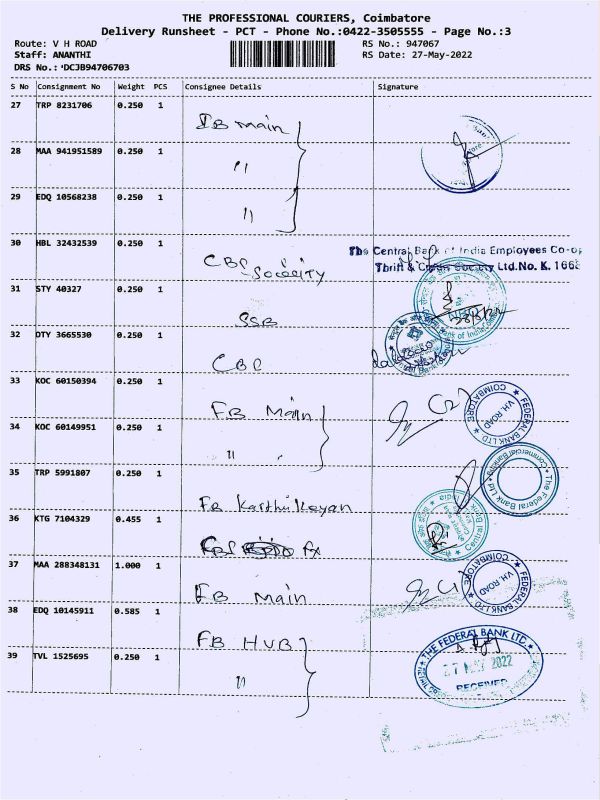 THE PROFESSIONAL COURIERS, Coimbatore
Delivery Runsheet - PCT - Phone No.:0422-3505555 - Page No.:3
Route: V H ROAD RS No.: 947067
Staff: ANANTHI RS Date: 27-May-2022
DRS No.: *DCJB94706703
S No Consignment No Weight PCS Consignee Details Signature
27 TRP 8231706 0.250 1
IB Main
28 MAA 941951589 0.250 1
"
29 EDQ 10568238 0.250 1
"
30 HBL 32432539 0.250 1
The Central Bank of India Employees Co-op
CBI Society Thrift & Credit Society Ltd.No. K. 1668
31 STY 40327 0.250 1
SSB
32 DTY 3665530 0.250 1
CBI
33 KOC 60150394 0.250 1
FB Main (2)
FEDERAL BANK LTD COIMBATORE V.H. ROAD
34 KOC 60149951 0.250 1
"
The Federal Bank Ltd Commercial Banking
35 TRP 5991807 0.250 1
FB Karthikeyan
36 KTG 7104329 0.455 1
37 MAA 288348131 1.000 1
FEDERAL BANK LTD COIMBATORE V.H. ROAD
FB Main
38 EDQ 10145911 0.585 1
FB HUB
THE FEDERAL BANK LTD.
39 TVL 1525695 0.250 1
27 MAY 2022
"
RECEIVED